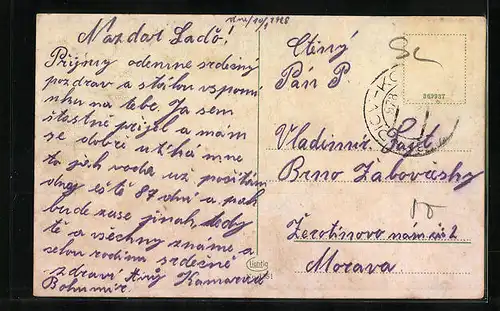 Nazdar Laďo!
Přijmy odemne srdečný
pozdrav a stálou vzpomí
nku na tebe. Ja sem
šťastně přijel a mám
se dobře utíká mne
to jak voda už počítám
dny eště 87 dnů a pak
bude zase jinak, tedy
tě a všechny známe a
celou rodinu srdečně
zdraví tvůj Kamarád
Bohumír.
Ctěný
Pán P
Vladimír
Brno Žabovřesky
Žerotínovo nám. č. 2
Morava